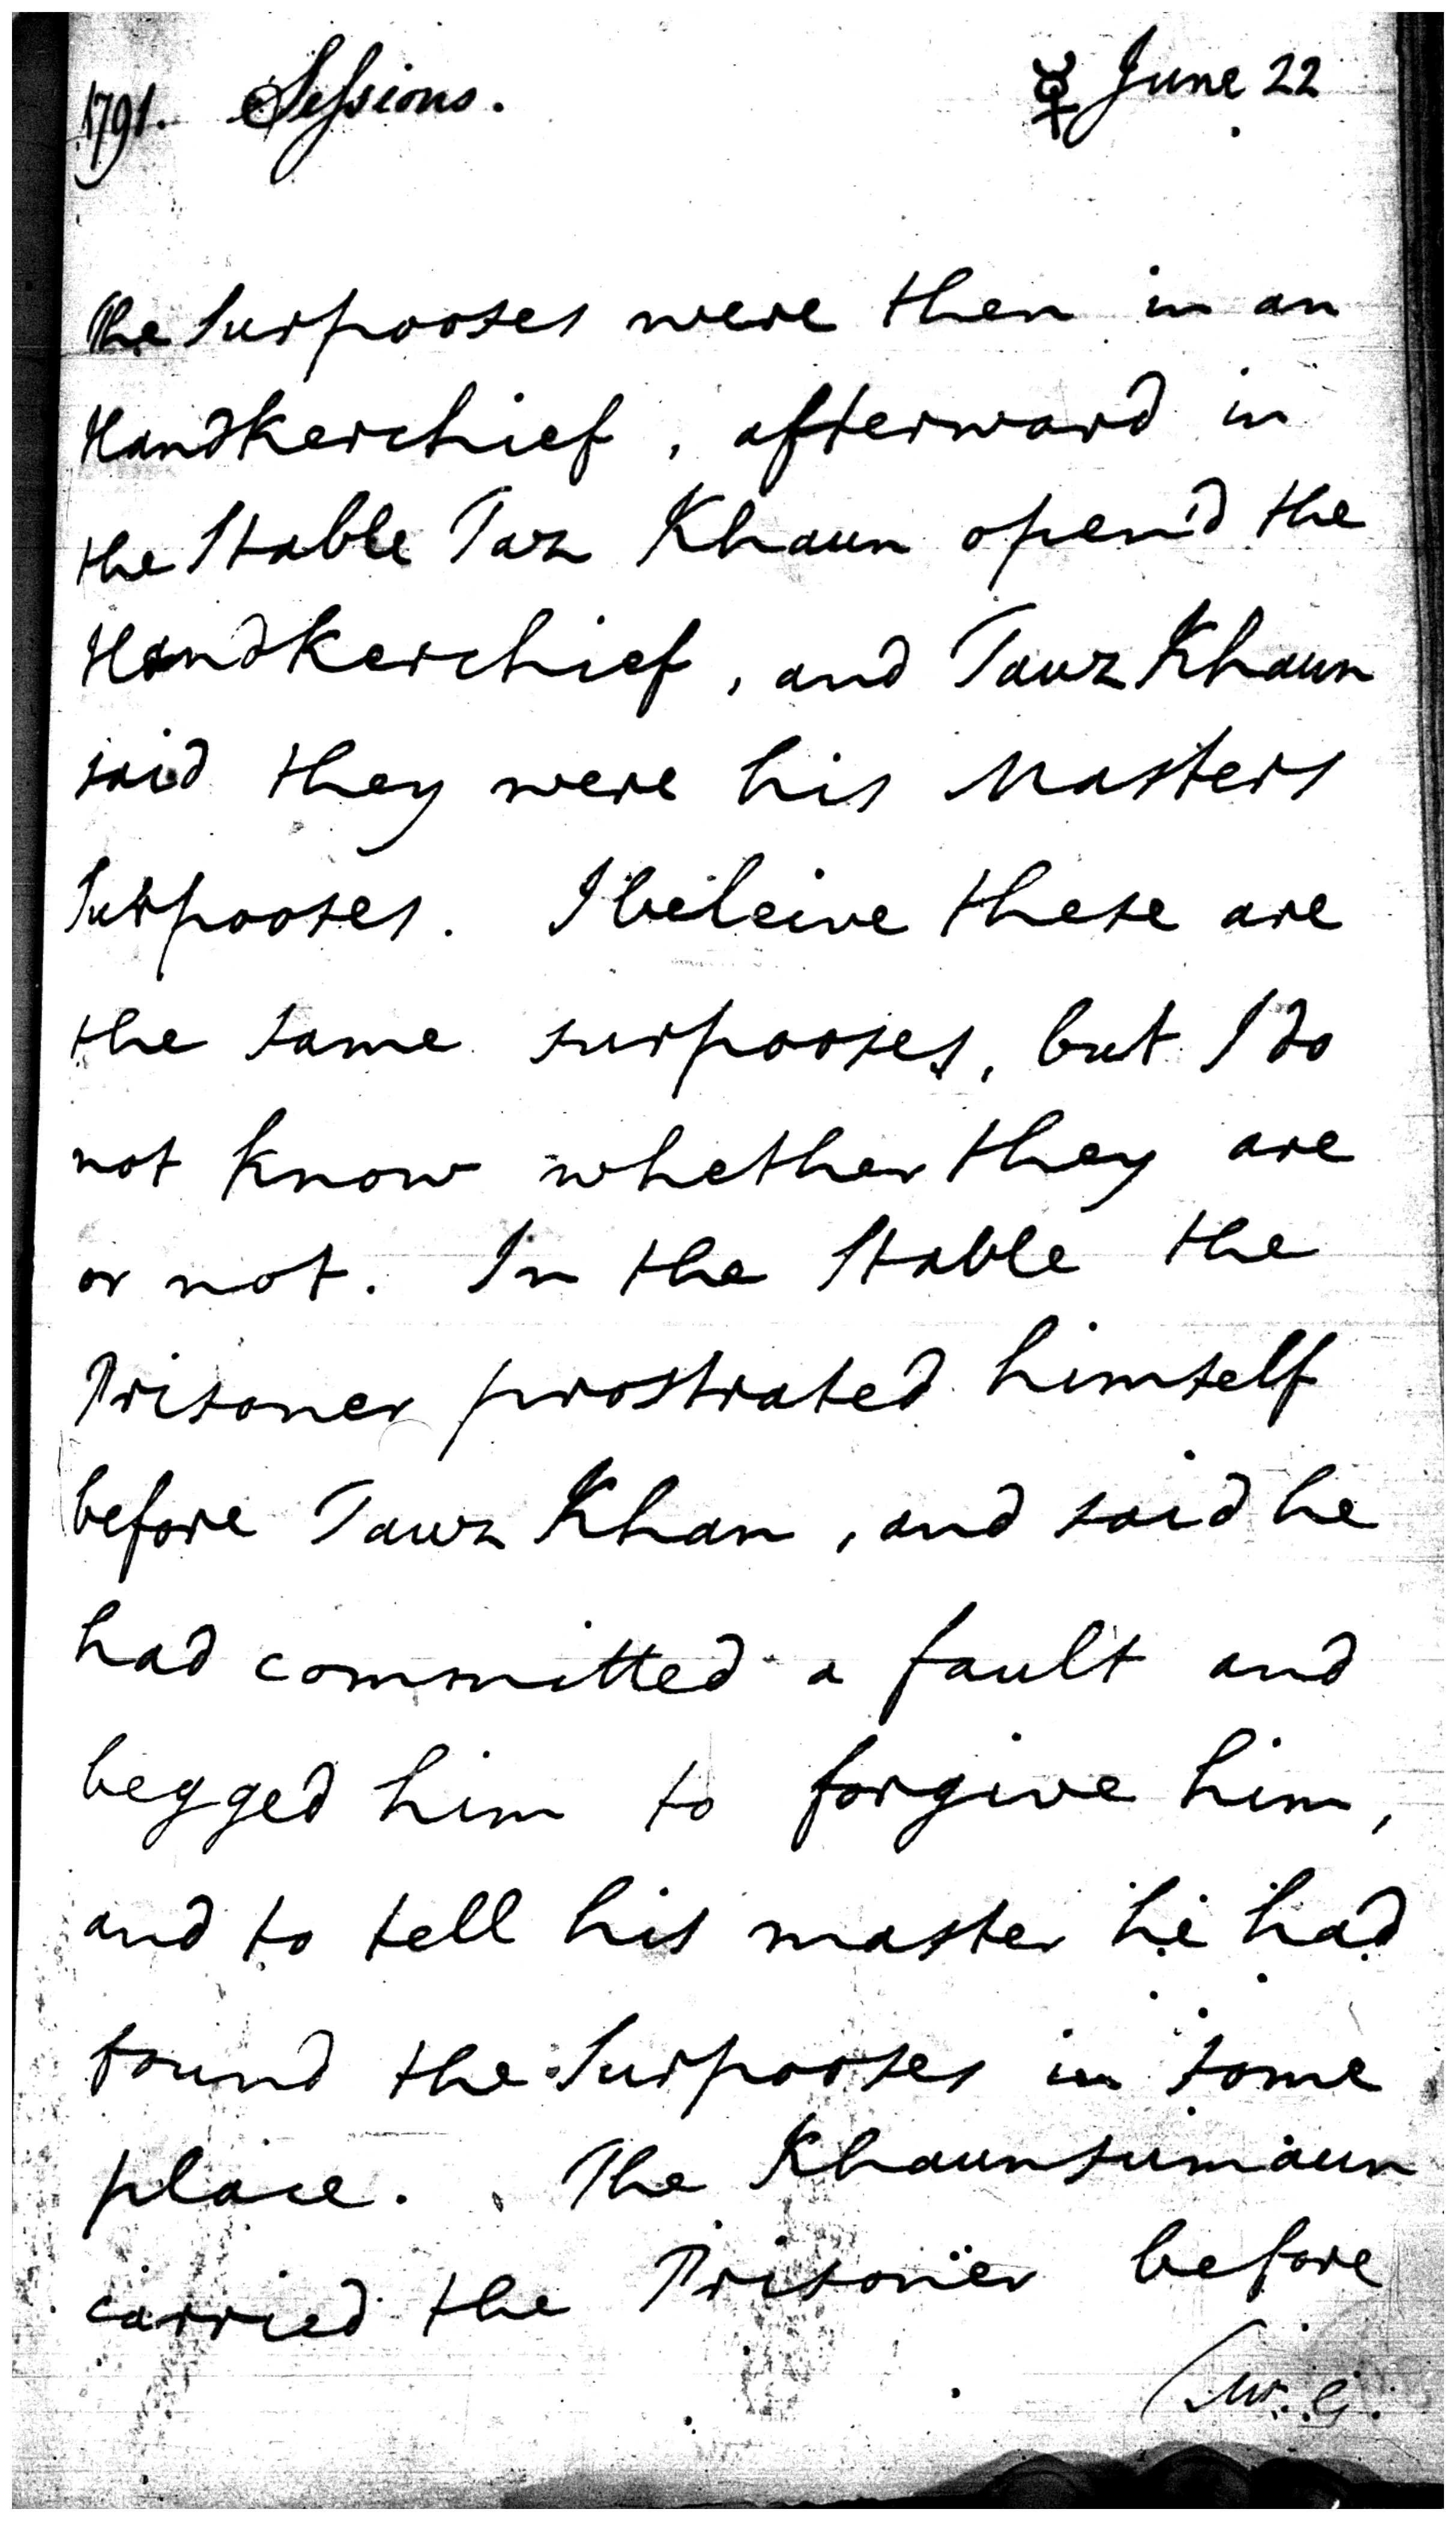 1791. Sessions. ☿ June 22
the Surpooses were then in an
Handkerchief, afterward in
the Stable Taz Khaun open'd the
Handkerchief, and Tauz Khaun
said they were his Masters
Surpooses. I beleive these are
the same surpooses, but I do
not know whether they are
or not. In the Stable the
Prisoner prostrated himself
before Tauz Khan, and said he
had committed a fault and
begged him to forgive him,
and to tell his master he had
found the Surpooses in some
place. The Khaunsumaun
carried the Prisoner before
(Mr. G.